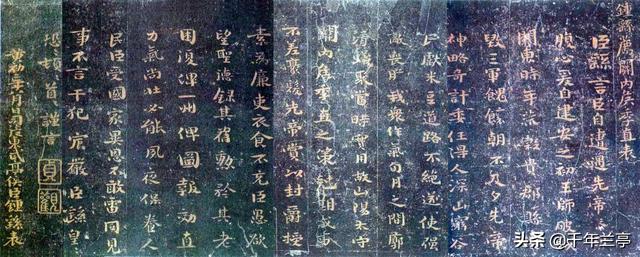 鍾繇薦關內侯季直表
臣繇言臣自遭遇先帝忝列
腹心爰自建安之初王師破賊
關東時年荒穀貴郡縣殘
毀三軍餽饟朝不及夕先帝
神略奇計委任得人深山窮谷
民獻米豆道路不絕遂使強
敵喪膽我衆作氣旬月之間廓
清蟻聚當時實用故山陽太守
關內侯季直之策剋期成事
不差豪髮先帝賞以封爵授
素為廉吏衣食不充臣愚欲
望聖德錄其舊勳矜其老
困復俾一州俾圖報效直
力氣尚壯必能夙夜保養人
民臣受國家異恩不敢雷同見
事不言干犯宸嚴臣繇皇
恐頓首謹言
貞觀
黃初二年八月日司徒東武亭侯臣鍾繇表
头条 @千年兰亭